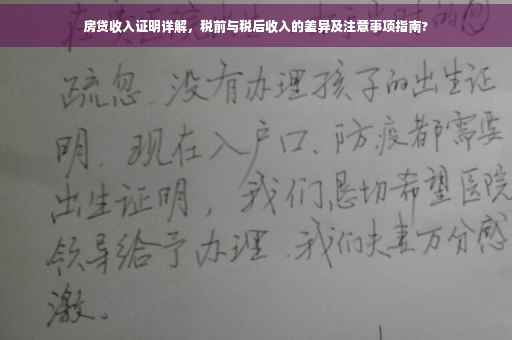 房贷收入证明详解，税前与税后收入的差异及注意事项指南?
疏忽.没有办理孩子的出生证
明.现在入户口、防疫都需要
出生证明，我们恳切希望医院
领导给予办理.我们夫妻万分感
激。